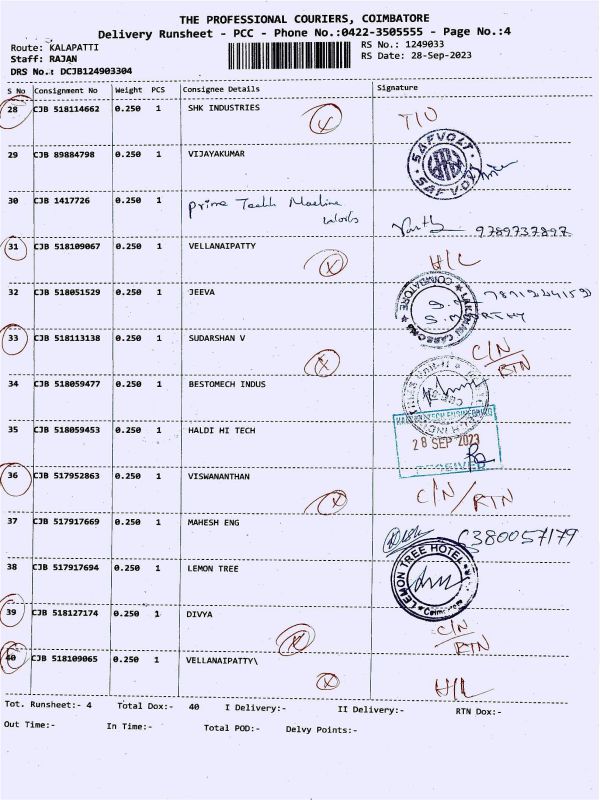 THE PROFESSIONAL COURIERS, COIMBATORE
Delivery Runsheet - PCC - Phone No.:0422-3505555 - Page No.:4
Route: KALAPATTI RS No.: 1249033
Staff: RAJAN RS Date: 28-Sep-2023
DRS No.: DCJB124903304
S No Consignment No Weight PCS Consignee Details Signature
28 CJB 518114662 0.250 1 SHK INDUSTRIES
29 CJB 89884798 0.250 1 VIJAYAKUMAR SAFVOLT SAFVOLT
30 CJB 1417726 0.250 1 Prime Machine
Works 9789737897
31 CJB 518109067 0.250 1 VELLANAIPATTY H/L
32 CJB 518051529 0.250 1 JEEVA COIMBATORE
33 CJB 518113138 0.250 1 SUDARSHAN V C/N
RTN
34 CJB 518059477 0.250 1 BESTOMECH INDUS
35 CJB 518059453 0.250 1 HALDI HI TECH 28 SEP 2023
RECEIVED
36 CJB 517952863 0.250 1 VISWANANTHAN C/N/RTN
37 CJB 517917669 0.250 1 MAHESH ENG 6380057179
38 CJB 517917694 0.250 1 LEMON TREE LEMON TREE HOTEL
39 CJB 518127174 0.250 1 DIVYA C/N
RTN
40 CJB 518109065 0.250 1 VELLANAIPATTY\ H/L
Tot. Runsheet:- 4 Total Dox:- 40 I Delivery:- II Delivery:- RTN Dox:-
Out Time:- In Time:- Total POD:- Delvy Points:-